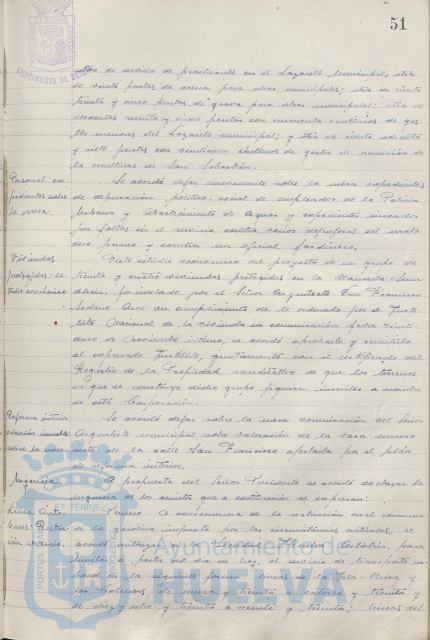 51
AYUNTAMIENTO DE HUELVA
otra de servicio de practicante en el Lazareto Municipal; otra
de veinte pesetas de arena para obras municipales; otra de ciento
treinta y cinco pesetas de grava para obras municipales; otra de
doscientas y cinco pesetas con cincuenta céntimos de gas-
tos menores del Lazareto municipal; y otra de ciento
y siete pesetas con veinticinco céntimos de gastos de
de San Sebastián.
Personal ex-
pedientes sobre
la mesa.
Se acordó dejar nuevamente sobre la mesa expedientes
de depuración político-social de empleados de la Policía
Urbana y Abastecimiento de Aguas y expedientes incoados
por faltas en el servicio contra varios
y contra un oficial jardinero.
Viviendas
protegidas: es-
tudio económico
Visto estudio económico del proyecto de un grupo de
treinta y cuatro viviendas protegidas en la Alameda Sun-
dheim, formulado por el Señor Arquitecto Don Francisco
Sedano Arce en cumplimiento de lo ordenado por el Insti-
tuto Nacional de la Vivienda en comunicación fecha veinti-
cinco de Noviembre último, se acordó aprobarle y remitirlo
al expresado Instituto, juntamente con el certificado del
Registro de la Propiedad acreditativo de que los terrenos
en que se construye dicho grupo figuran inscritos a nombre
de esta Corporación.
Reforma interior
valoración inmueble
sobre la mesa
Se acordó dejar sobre la mesa comunicación del Señor
Arquitecto municipal sobre valoración de la casa número
siete de la calle San Francisco afectada por el plan
de reforma interior.
Urgencia.
A propuesta del Señor Presidente se acordó declarar la
urgencia de los asuntos que a continuación se expresan:
Línea Auto-
buses: Restric-
ción servicio.
Primero. A consecuencia de la restricción en el consumo
de la gasolina impuesta por las circunstancias actuales, se
acordó autorizar a la Sociedad de Autobús, para
limitar a partir del día de hoy, el servicio de transporte ur-
bano en la siguiente forma: líneas de la Isla Chica y
las Colonias, de nueve y treinta a catorce y treinta y
de diez y ocho y treinta a veinte y treinta; líneas del
Ayuntamiento de
HUELVA